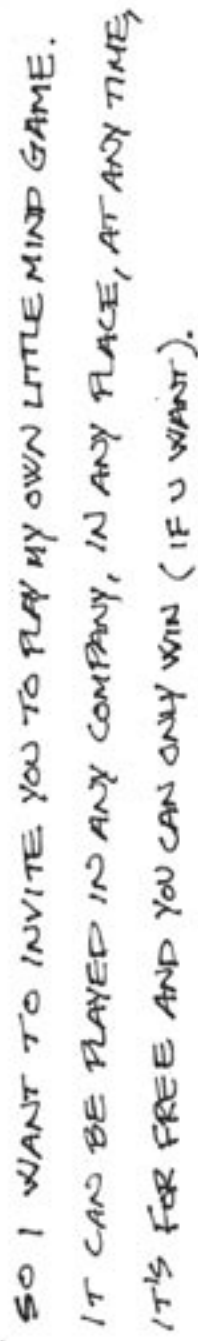 SO I WANT TO INVITE YOU TO PLAY MY OWN LITTLE MIND GAME.
IT CAN BE PLAYED IN ANY COMPANY, IN ANY PLACE, AT ANY TIME,
IT'S FOR FREE AND YOU CAN ONLY WIN (IF U WANT).